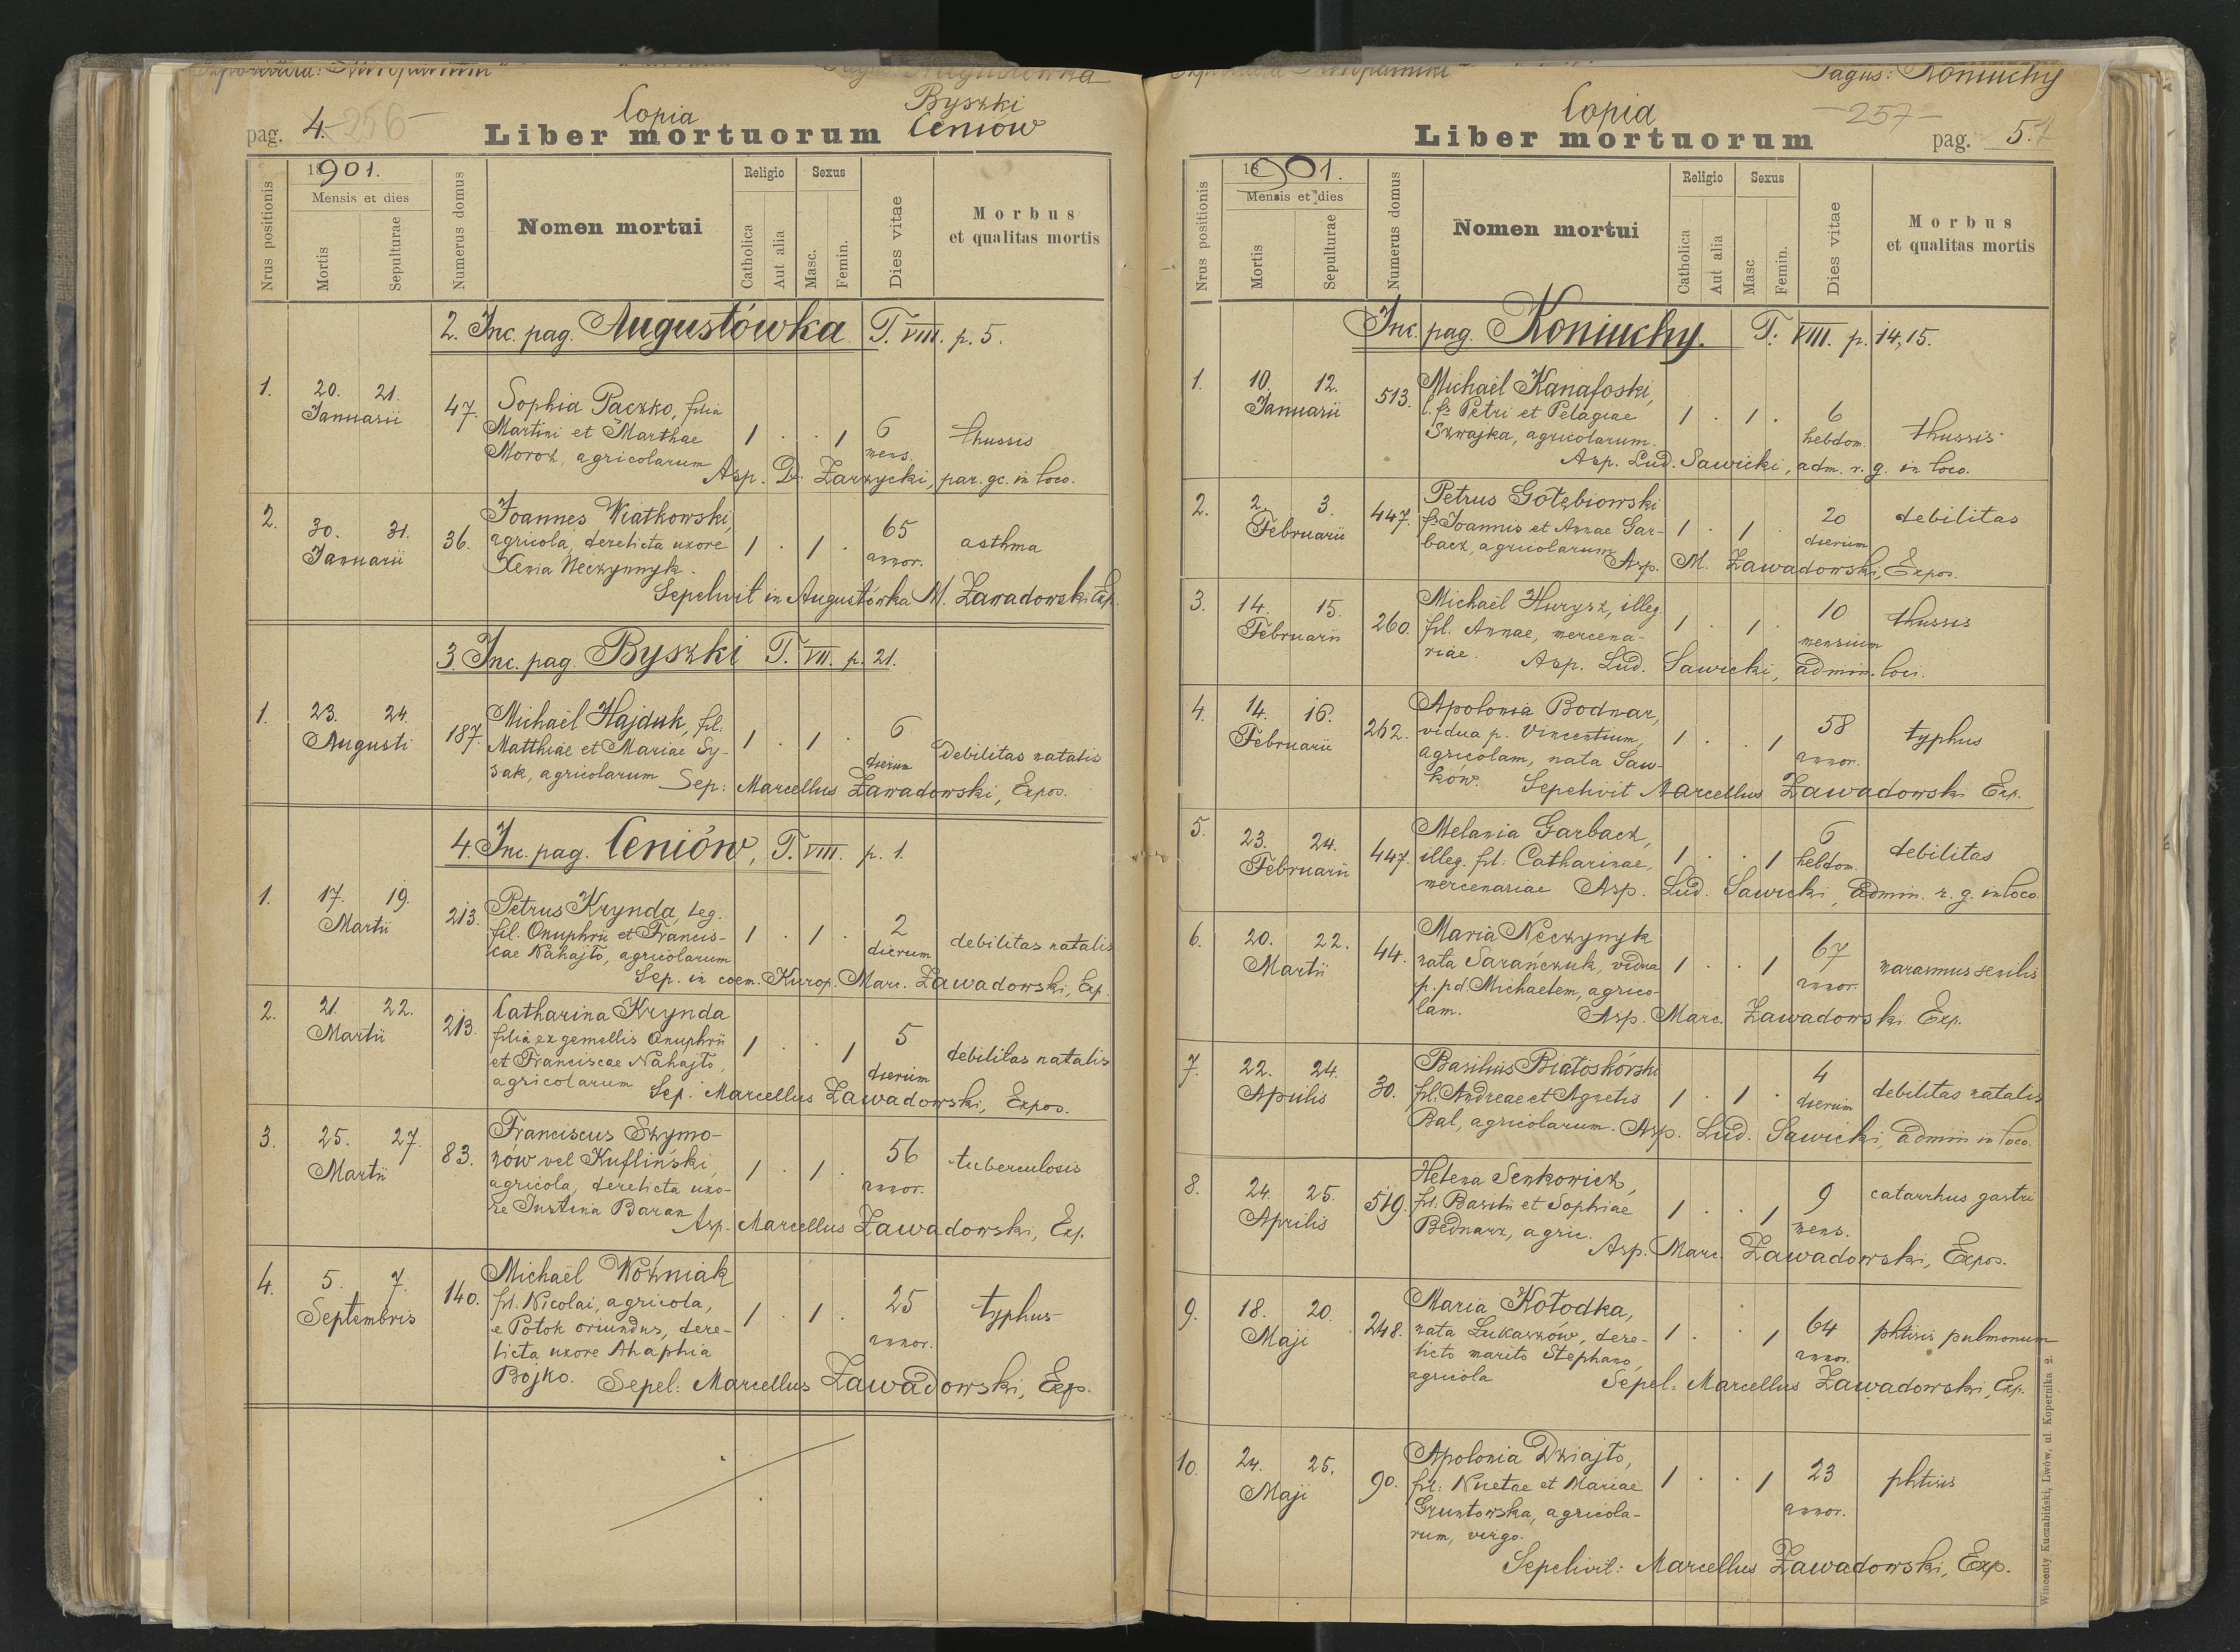 Copia
Byszki
pag. 4. 256 Liber mortuorum Ceniów
Nrus positionis
1901.
Mensis et dies
Mortis
Sepulturae
Numerus domus
Nomen mortui
Religio
Catholica
Aut alia
Sexus
Masc.
Femin.
Dies vitae
Morbus
et qualitas mortis
2. Inc. pag. Augustówka. T. VIII. p. 5.
1. 20. 21. Januarii 47.
Sophia Paczko, filia
Martini et Marthae
Moroz, agricolarum
1 . . 1 6 mens. thussis
Asp. D. Zarzycki, par. gc. in loco.
2. 30. 31. Januarii 36.
Joannes Wiatkowski,
agricola, derelicta uxore
Xenia Neczynnyk.
1 . 1 . 65 annor. asthma
Sepelivit in Augustówka M. Zawadowski Exp.
3. Inc. pag. Byszki T. VII. p. 21.
1. 23. 24. Augusti 187.
Michaël Hajduk, fil.
Matthiae et Mariae Sy-
sak, agricolarum
1 . 1 . 6 dierum Debilitas natalis
Sep: Marcellus Zawadowski, Expos.
4. Inc. pag. Ceniów, T. VIII. p. 1.
1. 17. 19. Martii 213.
Petrus Krynda, leg.
fil. Onuphrii et Francis-
cae Nahajło, agricolarum
1 . 1 . 2 dierum debilitas natalis
Sep. in coem. Kurop. Marc. Zawadowski, Exp.
2. 21. 22. Martii 213.
Catharina Krynda
filia ex gemellis Onuphrii
et Franciscae Nahajło,
agricolarum
1 . . 1 5 dierum debilitas natalis
Sep. Marcellus Zawadowski, Expos.
3. 25. 27. Martii 83.
Franciscus Szymo-
now vel Kufliński,
agricola, derelicta uxo-
re Justina Baran
1 . 1 . 56 annor. tuberculosis
Asp. Marcellus Zawadowski, Exp.
4. 5. 7. Septembris 140.
Michaël Woźniak
fil. Nicolai, agricola,
e Potok oriundus, dere-
licta uxore Ahaphia
Bojko.
1 . 1 . 25 annor. typhus
Sepel: Marcellus Zawadowski, Exp.
Pagus: Koniuchy
Copia
257
Liber mortuorum pag. 5.
Nrus positionis
1901.
Mensis et dies
Mortis
Sepulturae
Numerus domus
Nomen mortui
Religio
Catholica
Aut alia
Sexus
Masc
Femin.
Dies vitae
Morbus
et qualitas mortis
Inc. pag. Koniuchy. T. VIII. p. 14, 15.
1. 10. 12. Januarii 513.
Michaël Kanafoski,
l. fs Petri et Pelagiae
Szwajka, agricolarum.
1 . 1 . 6 hebdom. thussis
Asp. Lud. Sawicki, adm. r. g. in loco.
2. 2. 3. Februarii 447.
Petrus Gołębiowski
fs Joannis et Annae Gar-
bacz, agricolarum
1 . 1 20 dierum debilitas
Asp. M. Zawadowski, Expos.
3. 14. 15. Februarii 260.
Michaël Hurysz, illeg.
fil: Annae, mercena-
riae.
1 . 1 . 10 mensium thussis
Asp. Lud. Sawicki, admin. loci.
4. 14. 16. Februarii 262.
Apolonia Bodnar,
vidua p. Vincentium,
agricolam, nata Saw-
ków.
1 . . 1 58 annor. typhus
Sepelivit Marcellus Zawadowski Exp.
5. 23. 24. Februarii 447.
Melania Garbacz,
illeg. fil: Catharinae,
mercenariae
1 . . 1 6 hebdom. debilitas
Asp. Lud. Sawicki, admin. r. g. in loco
6. 20. 22. Martii 44.
Maria Neczynyk
nata Sarańczuk, vidua
p. pd. Michaelem, agrico-
lam.
1 . . 1 67 annor. marasmus senilis
Asp. Marc. Zawadowski Exp.
7. 22. 24. Aprilis 30.
Basilius Białoskórski
fil. Andreae et Agnetis
Bal, agricolarum.
1 . 1 . 4 dierum debilitas natalis
Asp. Lud. Sawicki, admin in loco.
8. 24. 25. Aprilis 519.
Helena Senkowicz,
fil: Basilii et Sophiae
Bednarz, agric.
1 . . 1 9 mens. catarrhus gastri
Asp. Marc. Zawadowski, Expos.
9. 18. 20. Maji 248.
Maria Kołodka,
nata Łukaszów, dere-
licto marito Stephano,
agricola
1 . . 1 64 annor. phtisis pulmonum
Sepel: Marcellus Zawadowski, Exp.
10. 24. 25. Maji 90.
Apolonia Dziajło,
fil: Nicetae et Mariae
Gruntowska, agricola-
rum, virgo.
1 . . 1 23 annor. phtisis
Sepelivit: Marcellus Zawadowski, Exp.
Wincenty Kuczabiński, Lwów, ul Kopernika 2.